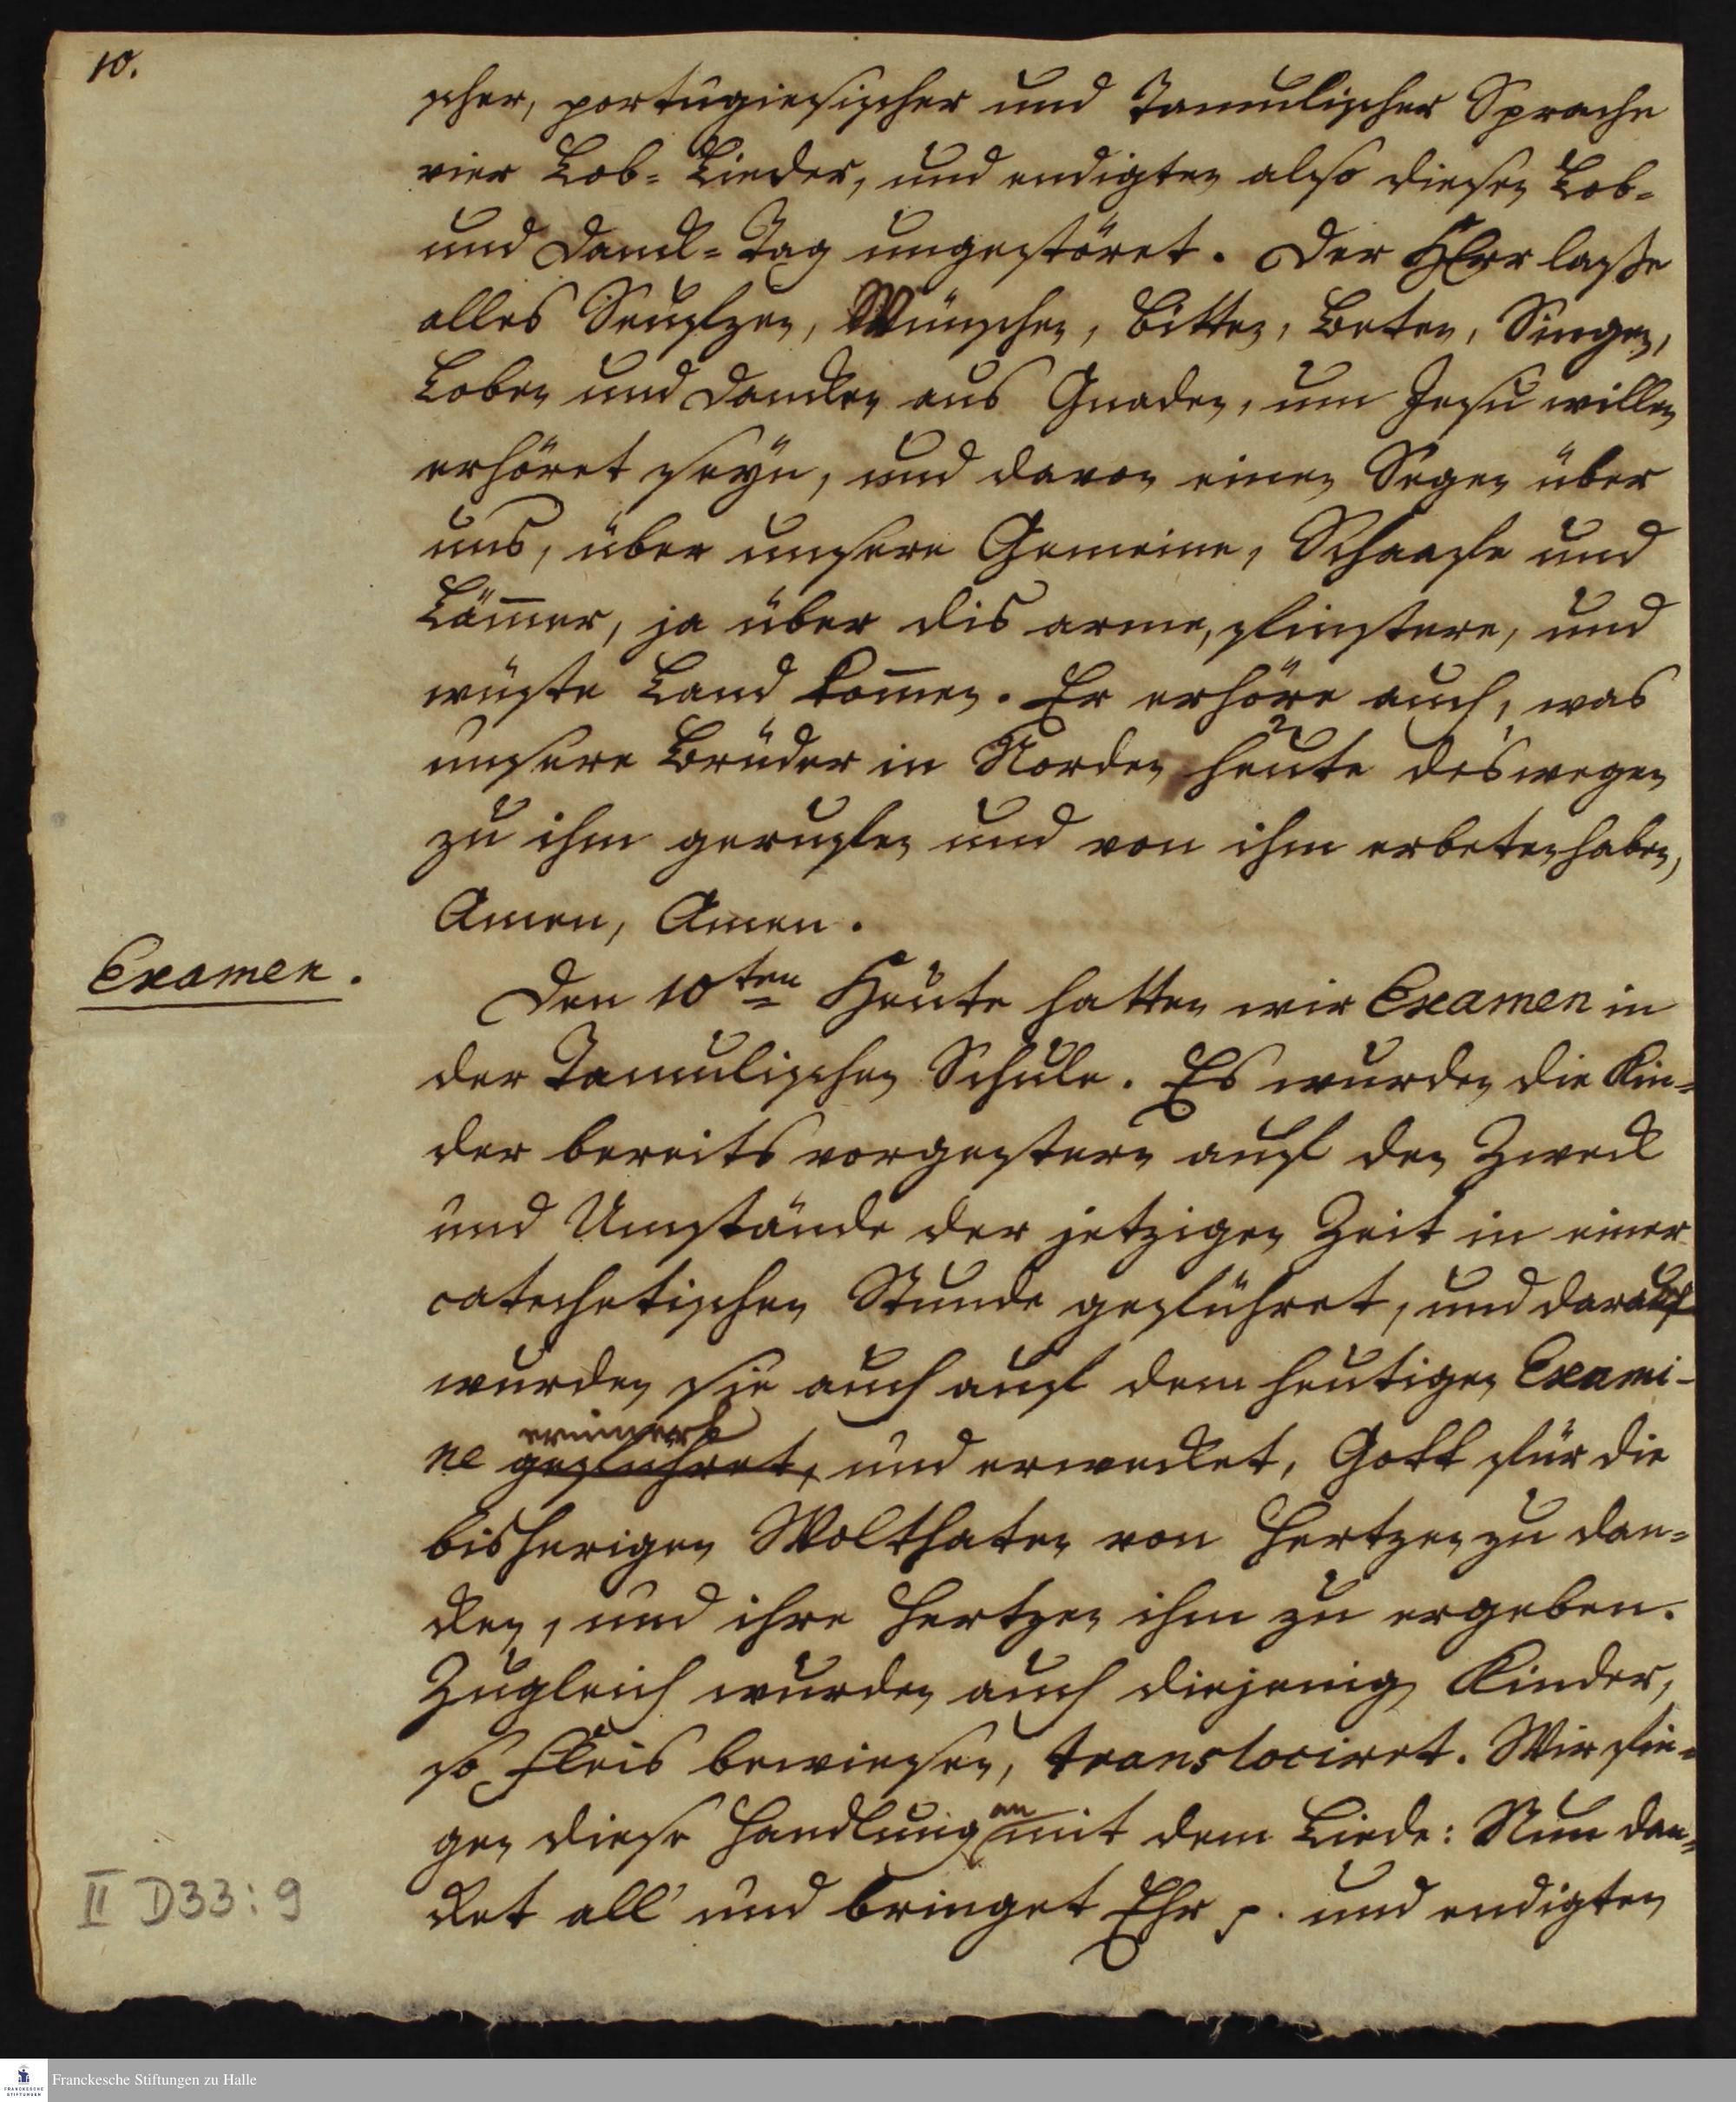 10.
scher, portugiesischer und Tamulischer Sprache
vier Lob-Lieder, und endigten also diesen Lob-
und Danck-Tag ungestöret. Der HErr lasse
alles Seufzen, Wünschen, Bitten, Beten, Singen,
Loben und Dancken aus Gnaden, um Jesu willen
erhöret seyn, und davon einen Segen über
uns, über unsere Gemeine, Schaafe und
Lämer, ja über dis arme, finstere, und
wüste Land komen. Er erhöre auch, was
unsere Brüder in Norden heute deswegen
zu ihm gerufen und von ihm erbeten haben,
Amen, Amen.
Examen.
Den 10ten Heute hatten wir Examen in
der Tamulischen Schule. Es wurden die Kin-
der bereits vorgestern auf den Zweck
und Umstände der jetzigen Zeit in einer
catechetischen Stunde geführet, und darauf
wurden sie auch auf dem heutigen Exami-
erinnert
ne geführet, und erwecket, Gott für die
bisherigen Wolthaten von Hertzen zu dan-
cken, und ihre Hertzen ihm zu ergeben.
Zugleich wurden auch diejenig Kinder,
so Fleis bewiesen, translociret. Wir fin-
an
gen diese Handlung mit dem Liede: Nun dan-
cket all' und bringet Ehr p. und endigten
II D33:9
Franckesche Stiftungen zu Halle
FRANCKESCHE
STIFTUNGEN